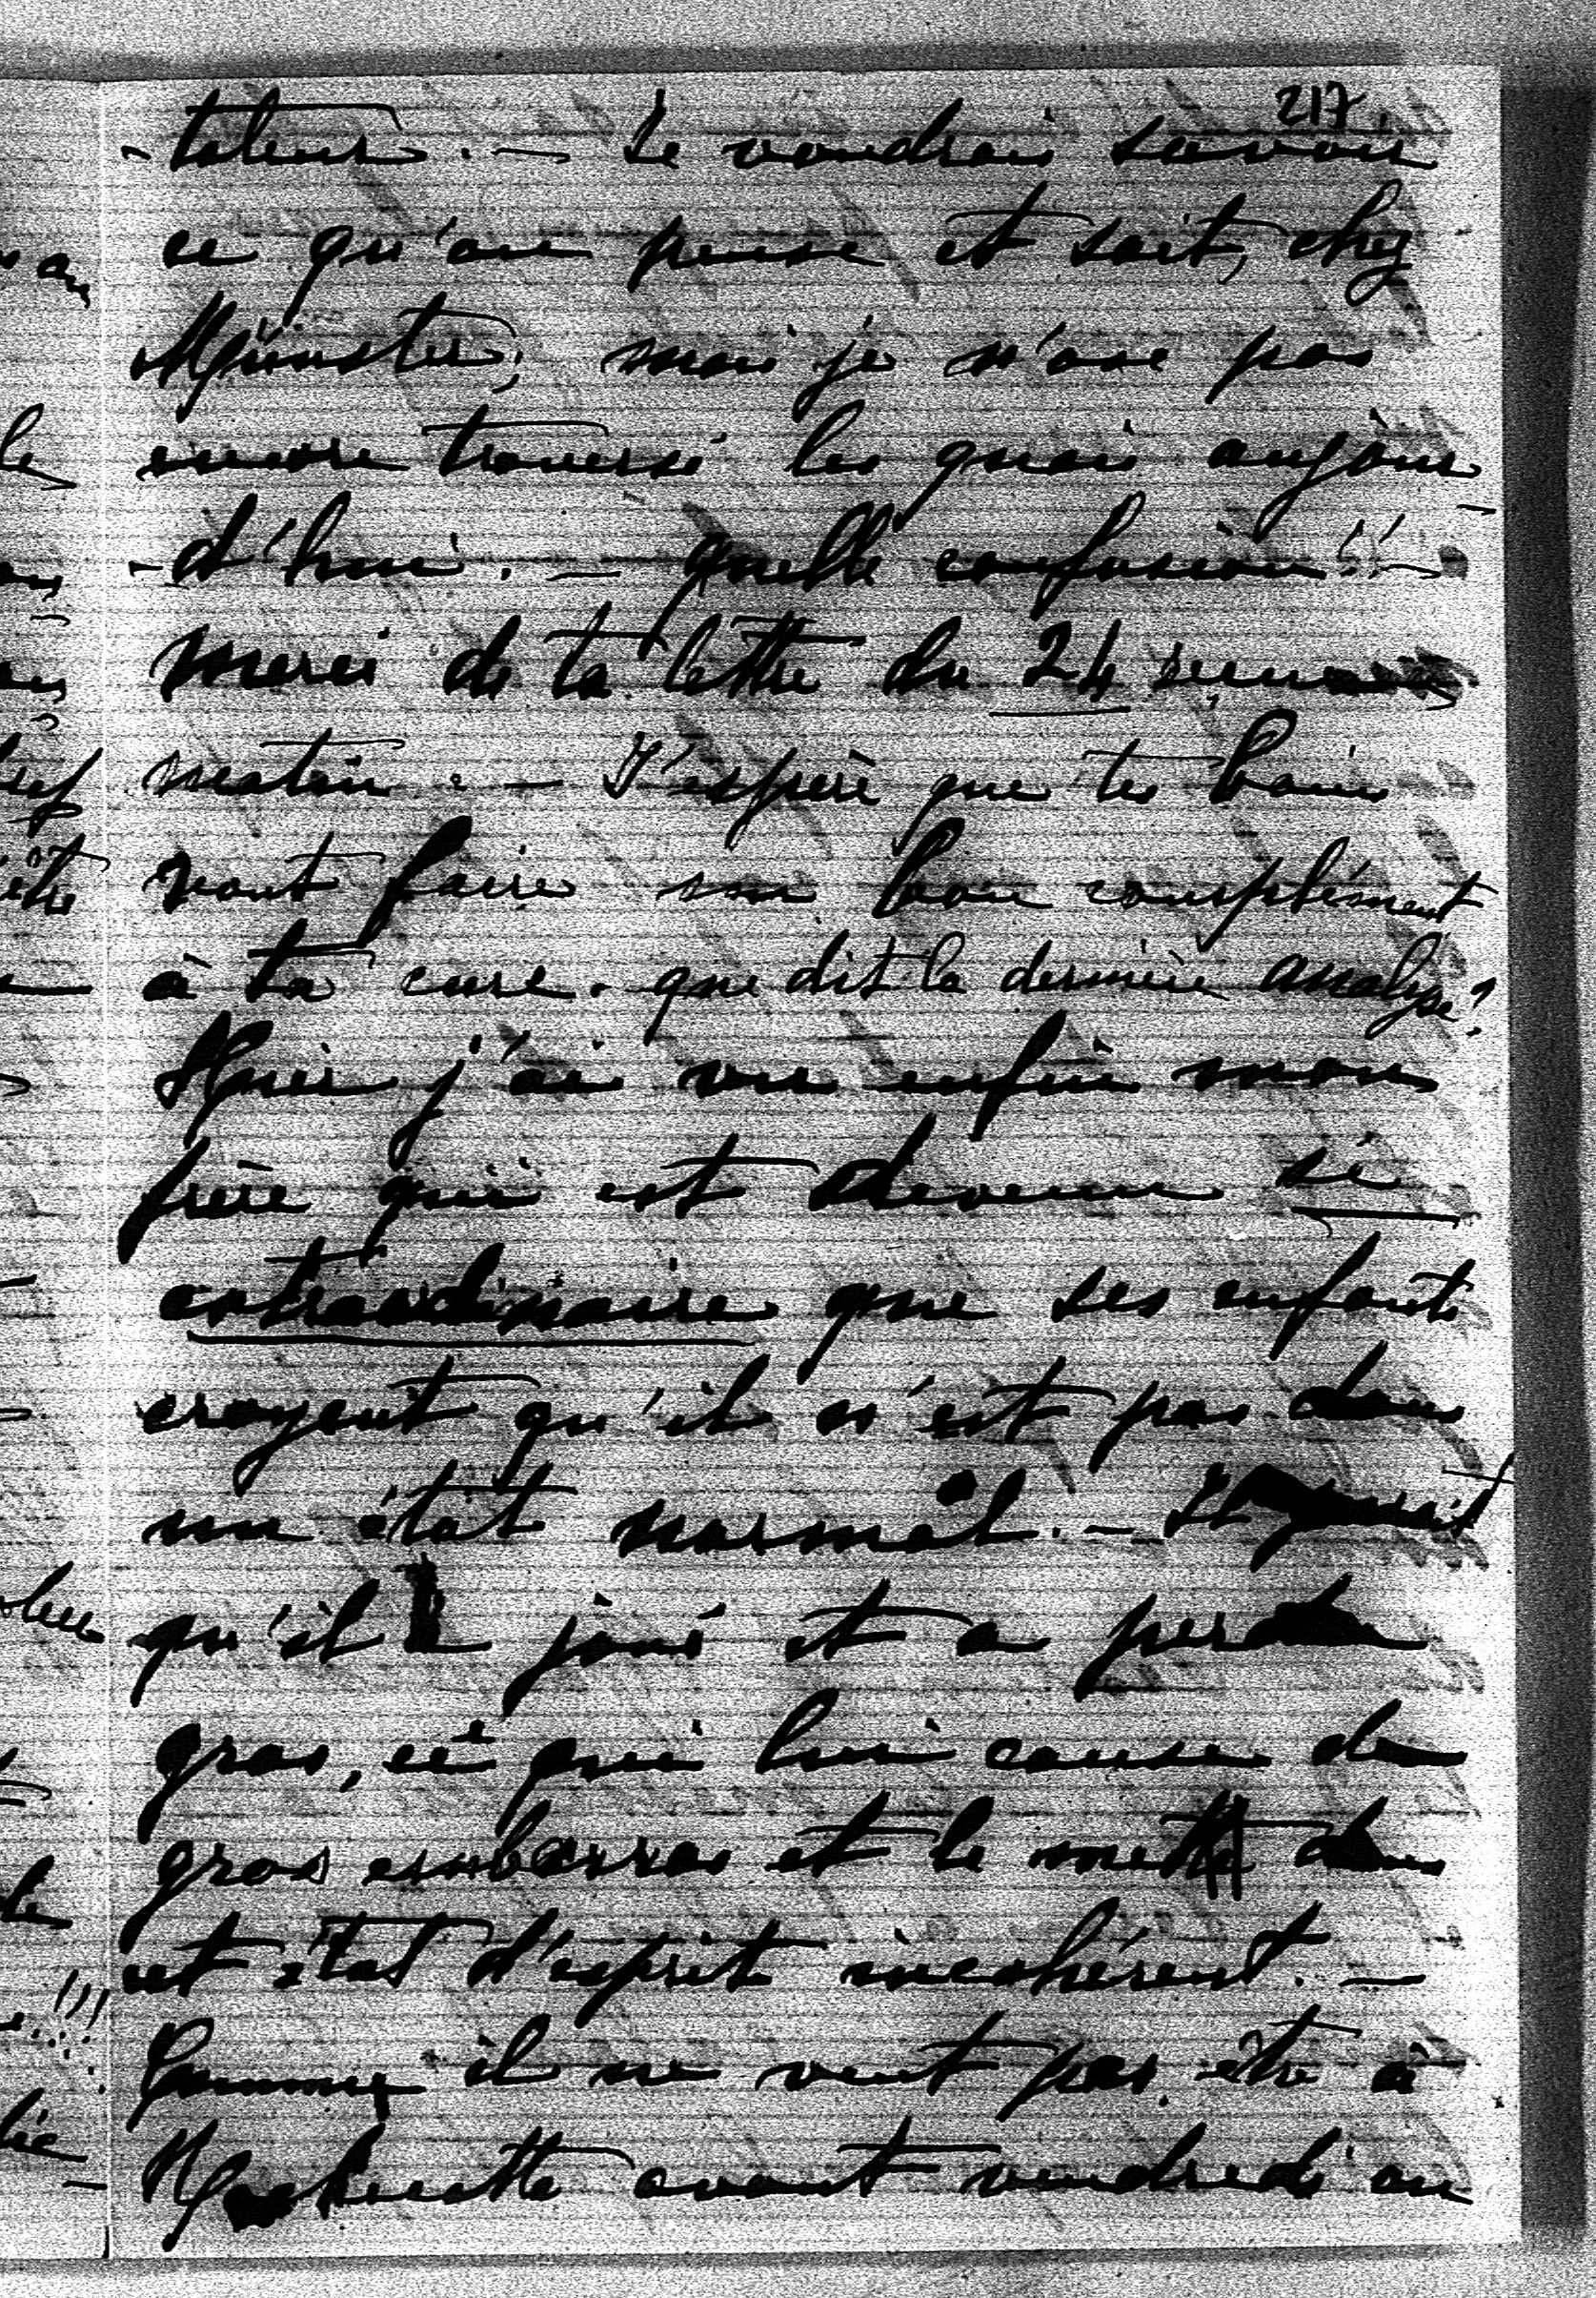 217.
-tateur. — Je voudrais savoir
ce qu'on pense et sait, chez
Münster, mais je n'ose pas
encore traverser les quais aujour-
-d'hui. — quelle confusion!! —
merci de ta lettre du 24 reçue ce
matin. — J'espère que tes bains
vont faire un bon complément
à ta cure. que dit la dernière analyse?
Hier j'ai vu enfin mon
frère qui est devenu si
extraordinaire que ses enfants
croyent qu'il n'est pas dans
un état normal. — Il paraît
qu'il a joué et a perdu
gros, ce qui lui cause de
gros embarras et le met dans
cet état d'esprit incohérent. —
Comme il ne veut pas être à
avant vendredi ou